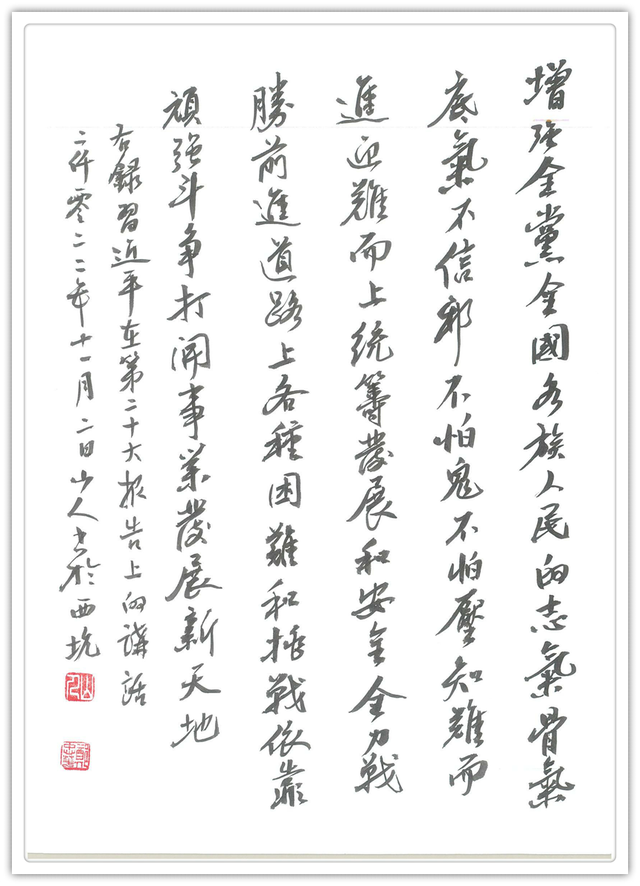 增强全黨全國各族人民的志氣骨氣
底氣不信邪不怕鬼不怕壓知難而
進迎難而上統籌發展和安全全力戰
勝前進道路上各種困難和挑戰依靠
頑强斗争打開事業發展新天地
右録習近平在第二十大报告上的講話
二仟零二二年十一月二日山人书於西坑
山人